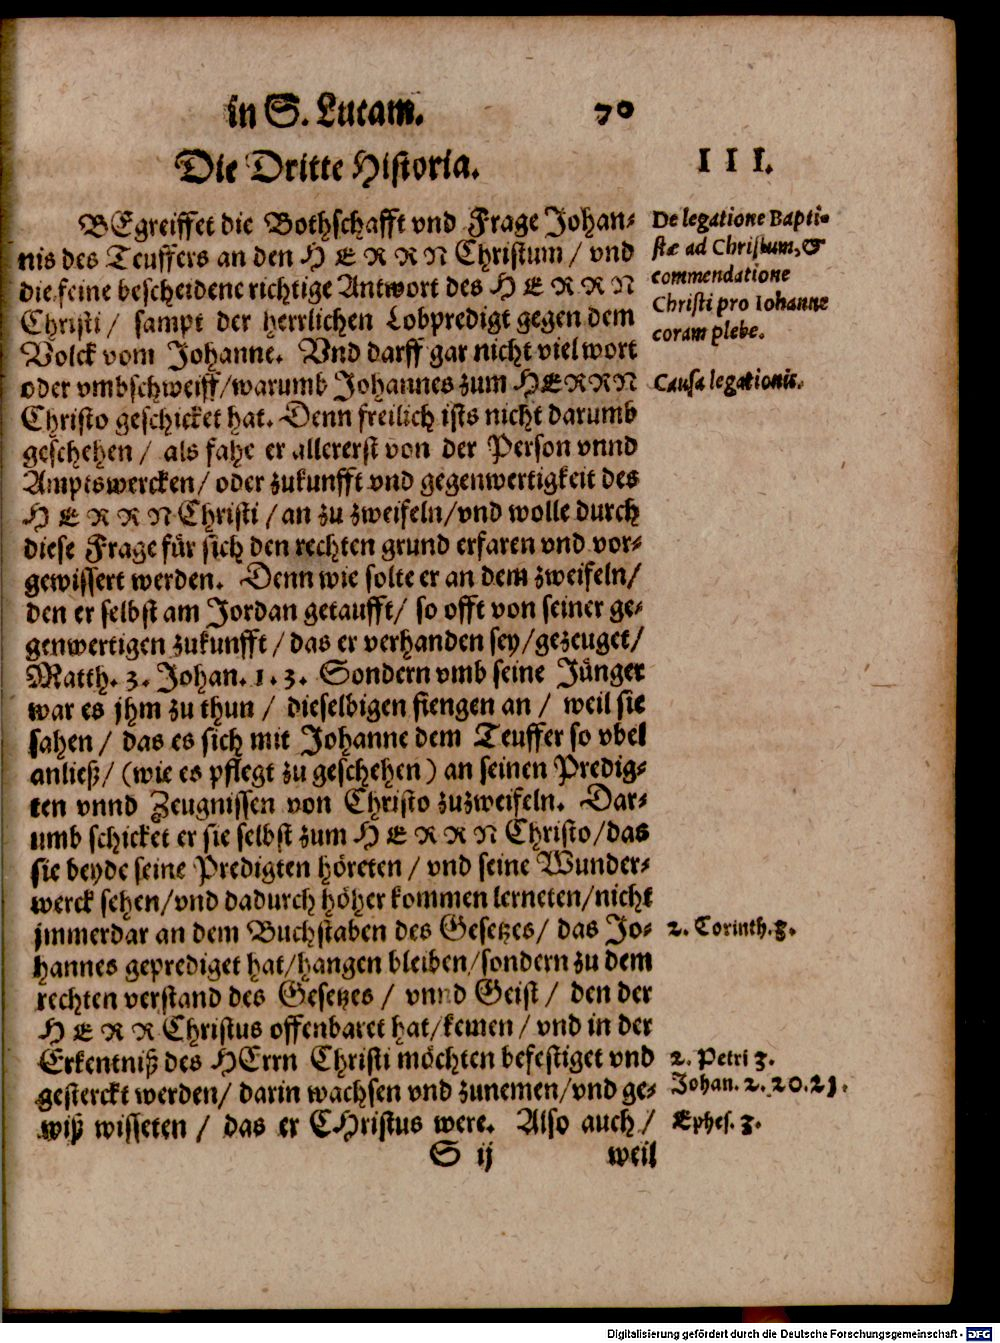 in S. Lucam. 70
Die Dritte Historia. III.
BEgreiffet die Bothschafft vnd Frage Johan-
nis des Teuffers an den HERRN Christum / vnd
die feine bescheidene richtige Antwort des HERRN
Christi / sampt der herrlichen Lobpredigt gegen dem
Volck vom Johanne. Vnd darff gar nicht viel wort
oder vmbschweiff / warumb Johannes zum HERRN
Christo geschicket hat. Denn freilich ists nicht darumb
geschehen / als fahe er allererst von der Person vnnd
Amptswercken / oder zukunfft vnd gegenwertigkeit des
HERRN Christi / an zu zweifeln / vnd wolle durch
diese Frage für sich den rechten grund erfaren vnd vor-
gewissert werden. Denn wie solte er an dem zweifeln /
den er selbst am Jordan getaufft / so offt von seiner ge-
genwertigen zukunfft / das er verhanden sey / gezeuget /
Matth. 3. Johan. 1. 3. Sondern vmb seine Jünger
war es jhm zu thun / dieselbigen fiengen an / weil sie
sahen / das es sich mit Johanne dem Teuffer so vbel
anließ / (wie es pflegt zu geschehen) an seinen Predig-
ten vnnd Zeugnissen von Christo zuzweifeln. Dar-
umb schicket er sie selbst zum HERRN Christo / das
sie beyde seine Predigten höreten / vnd seine Wunder-
werck sehen / vnd dadurch höher kommen lerneten / nicht
jmmerdar an dem Buchstaben des Gesetzes / das Jo-
hannes geprediget hat / hangen bleiben / sondern zu dem
rechten verstand des Gesetzes / vnnd Geist / den der
HERR Christus offenbaret hat / kemen / vnd in der
Erkentniß des HErrn Christi möchten befestiget vnd
gesterckt werden / darin wachsen vnd zunemen / vnd ge-
wiß wisseten / das er CHristus were. Also auch /
S ij weil
De legatione Bapti-
stæ ad Christum, &
commendatione
Christi pro Iohanne
coram plebe.
Causa legationis.
2. Corinth. 3.
2. Petri 3.
Johan. 2. 20. 21.
Ephes. 3.
Digitalisierung gefördert durch die Deutsche Forschungsgemeinschaft - DFG